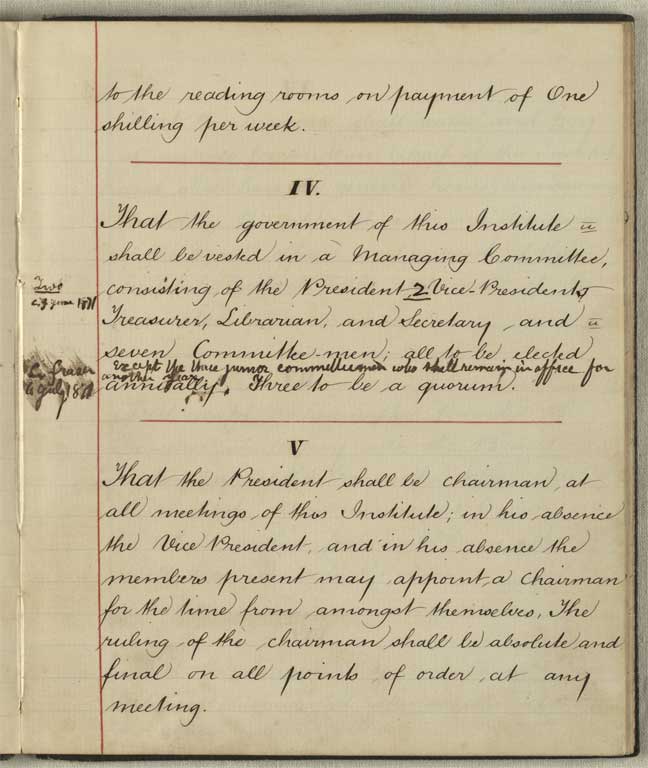 to the reading rooms on payment of One
shilling per week.
IV.
That the government of this Institute
shall be vested in a Managing Committee,
Two
consisting of the President 2 Vice-Presidents
June 1871
Treasurer, Librarian, and Secretary and
seven Committee-men; all to be elected
Except the three junior committeemen who shall remain in office for
another year
annually. Three to be a quorum.
July 1871
V
That the President shall be chairman, at
all meetings of this Institute; in his absence
the Vice President, and in his absence the
members present may appoint a chairman
for the time from amongst themselves. The
ruling of the chairman shall be absolute and
final on all points of order, at any
meeting.